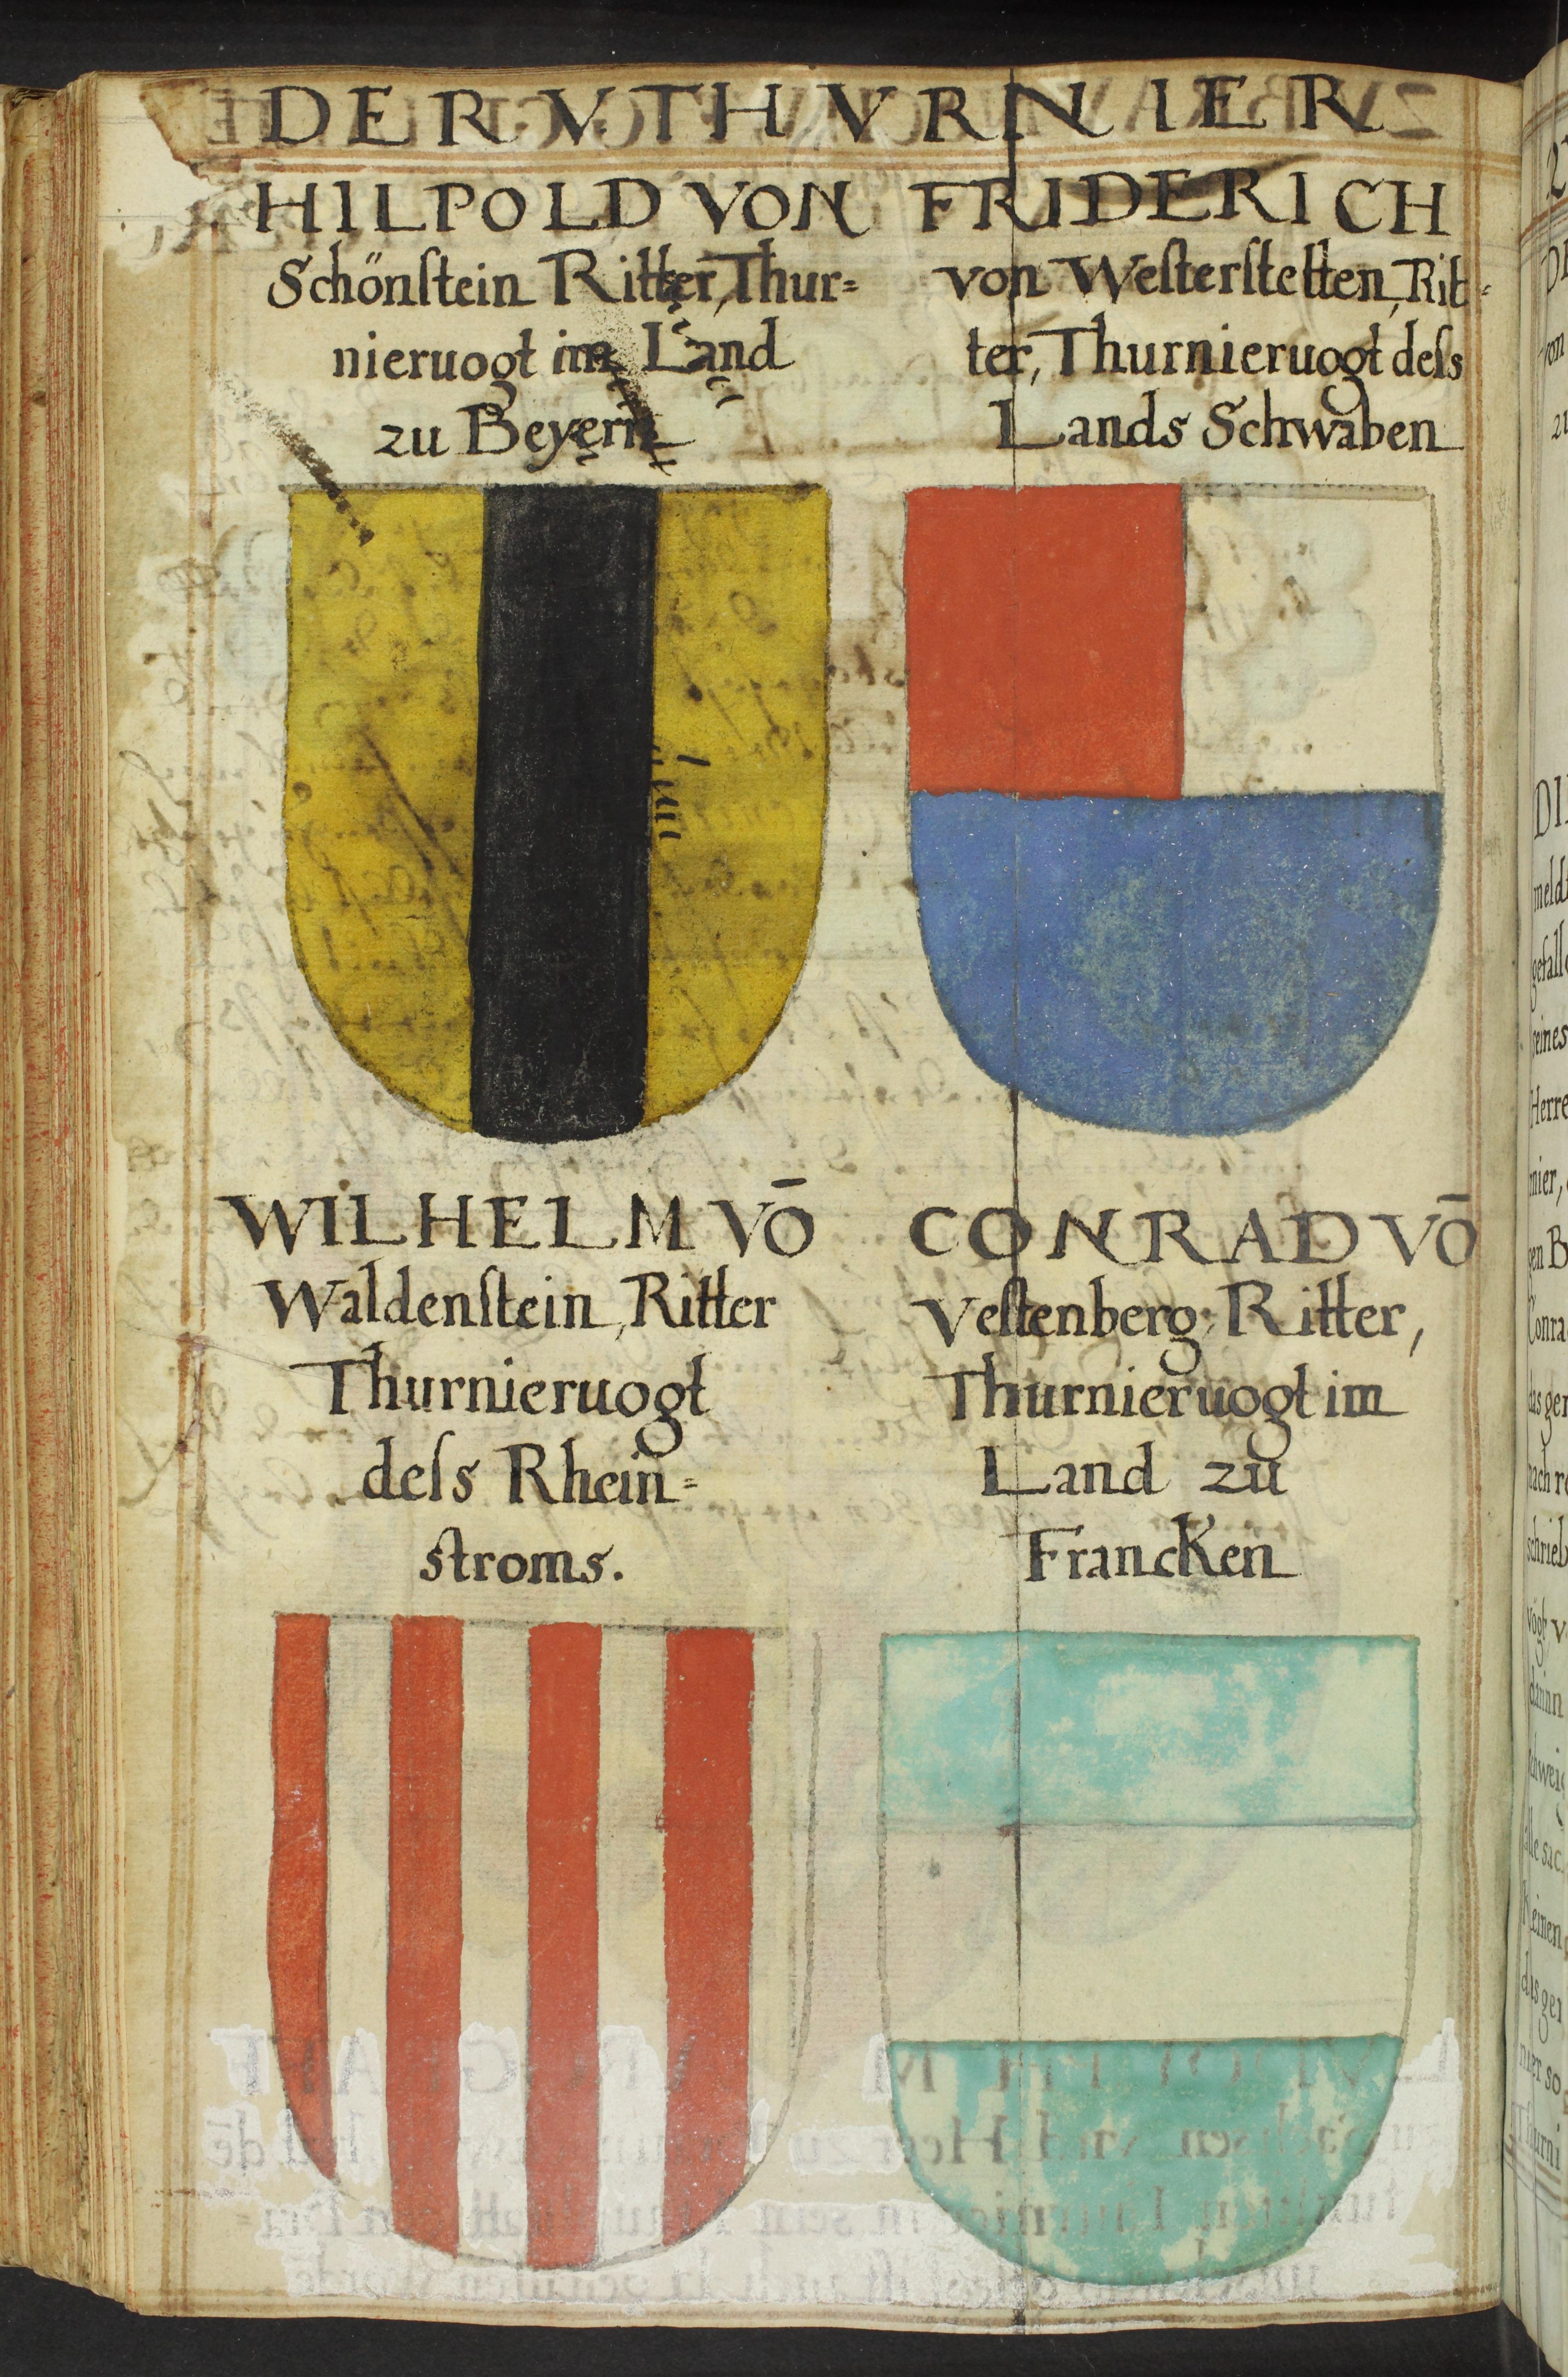 DER VTHVRNIER
HILPOLD VON
Schönſtein Ritter, Thur=
nieruogt im Land
zu Beyern
FRIDERICH
von Weſterſtetten, Rit=
ter, Thurnieruogt deſs
Lands Schwaben
WILHELM VŌ
Waldenſtein, Ritter
Thurnieruogt
deſs Rhein=
stroms.
CONRAD VŌ
Veſtenberg, Ritter,
Thurnieruogt im
Land zu
Francken